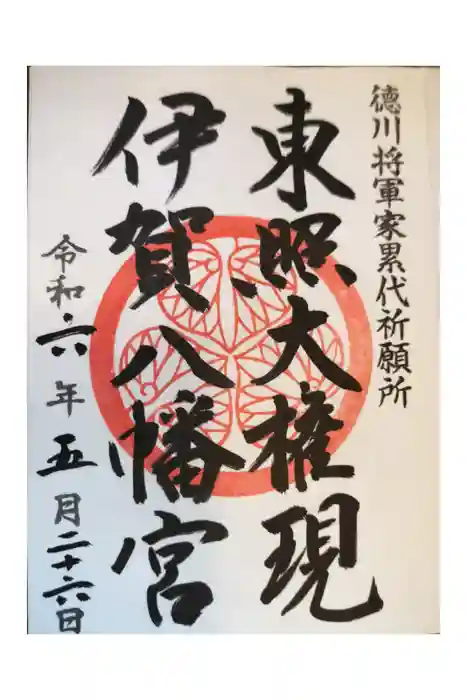 徳川将軍家累代祈願所
東照大権現
伊賀八幡宮
令和六年五月二十六日